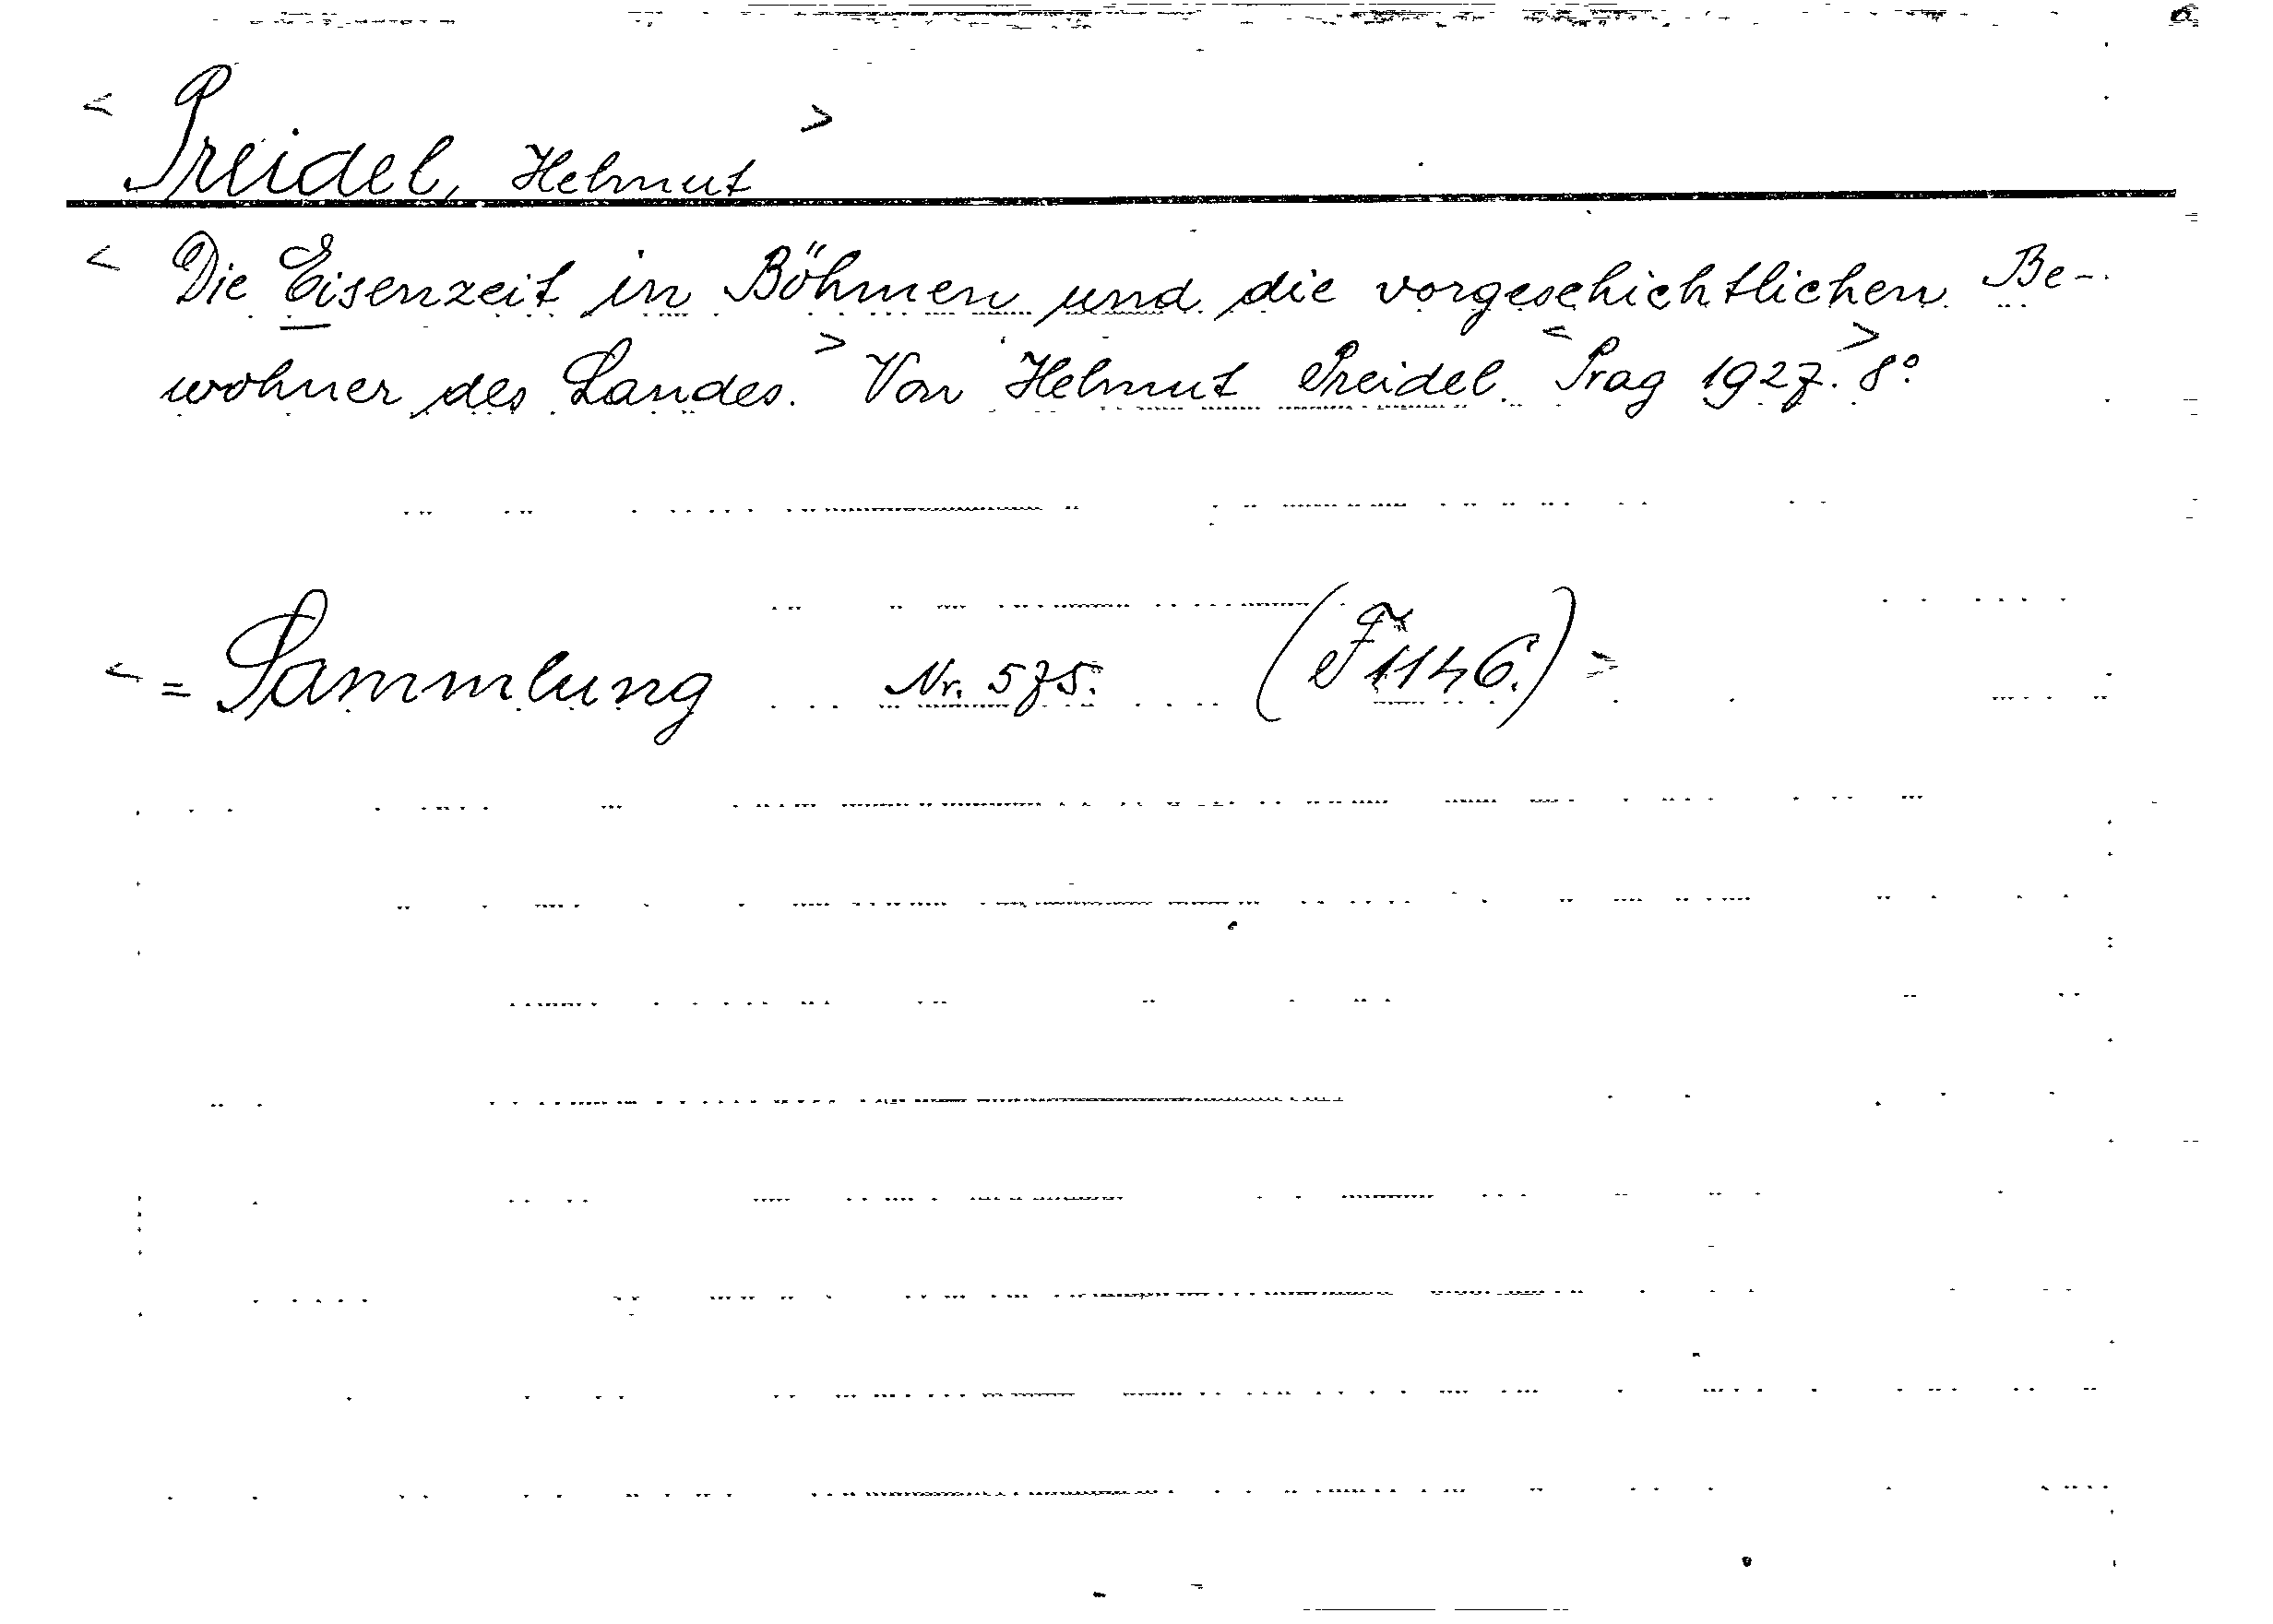 < Preidel, Helmut >
< Die Eisenzeit in Böhmen und die vorgeschichtlichen Be-
wohner des Landes. > Von Helmut Preidel. < Prag 1927. > 8°
< = Sammlung Nr. 575. (F 1146.) >